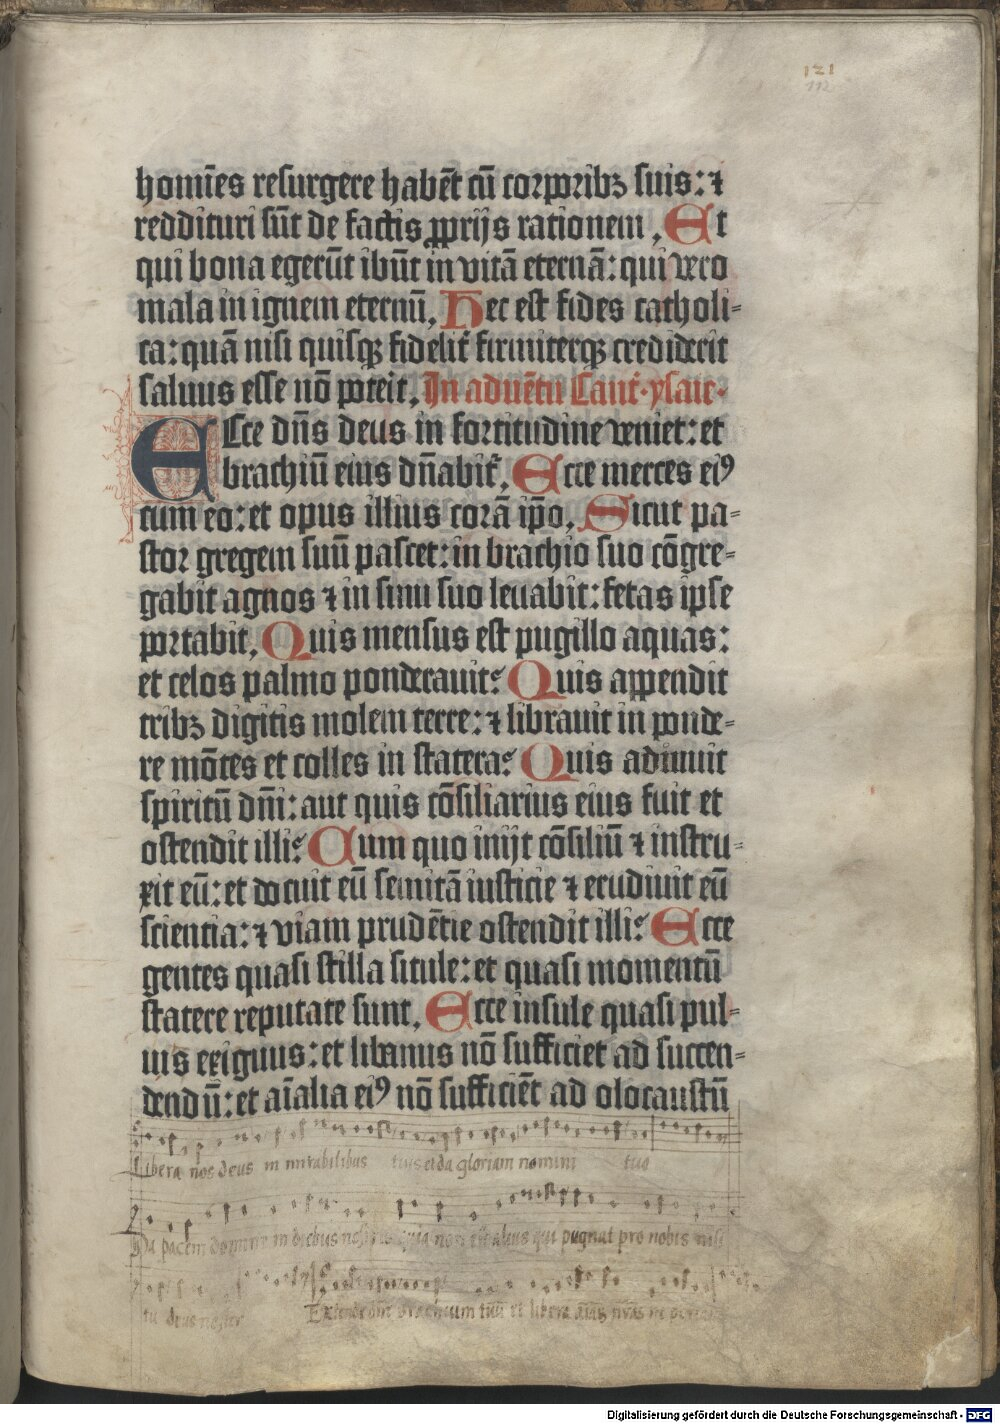 121
112
homīes resurgere habēt cū corporibꝫ suis: ⁊
reddituri sūt de factis ꝓprijs rationem, Et
qui bona egerūt ibūt in vitā eternā: qui vero
mala in ignem eternū, Hec est fides catholi-
ca: quā nisi quisqꝫ fidelit̄ firmiterqꝫ crediderit
saluus esse nō poterit, In aduētu Cant̄. ysaie.
ECce dn̄s deus in fortitudine veniet: et
brachiū eius dn̄abit̄, Ecce merces eiꝰ
cum eo: et opus illius corā ip̄o, Sicut pa-
stor gregem suū pascet: in brachio suo cōgre-
gabit agnos ⁊ in sinu suo leuabit: fetas ipse
portabit, Quis mensus est pugillo aquas:
et celos palmo ponderauit? Quis appendit
tribꝫ digitis molem terre: ⁊ librauit in ponde-
re mōtes et colles in statera? Quis adiuuit
spiritū dn̄i: aut quis cōsiliarius eius fuit et
ostendit illi? Cum quo inijt cōsiliū ⁊ instru-
xit eū: et docuit eū semitā iusticie ⁊ erudiuit eū
scientia: ⁊ viam prudētie ostendit illi? Ecce
gentes quasi stilla situle: et quasi momentū
statere reputate sunt, Ecce insule quasi pul-
uis exiguus: et libanus nō sufficiet ad succen-
dendū: et aīalia eiꝰ nō sufficiēt ad olocaustū
Libera nos deus in mirabilibus tuis et da gloriam nomini tuo
Da pacem domine in diebus nostris quia non est alius qui pugnat pro nobis nisi
tu deus noster Extende brachium tuū et libera aīas nr̄as ne
Digitalisierung gefördert durch die Deutsche Forschungsgemeinschaft - DFG